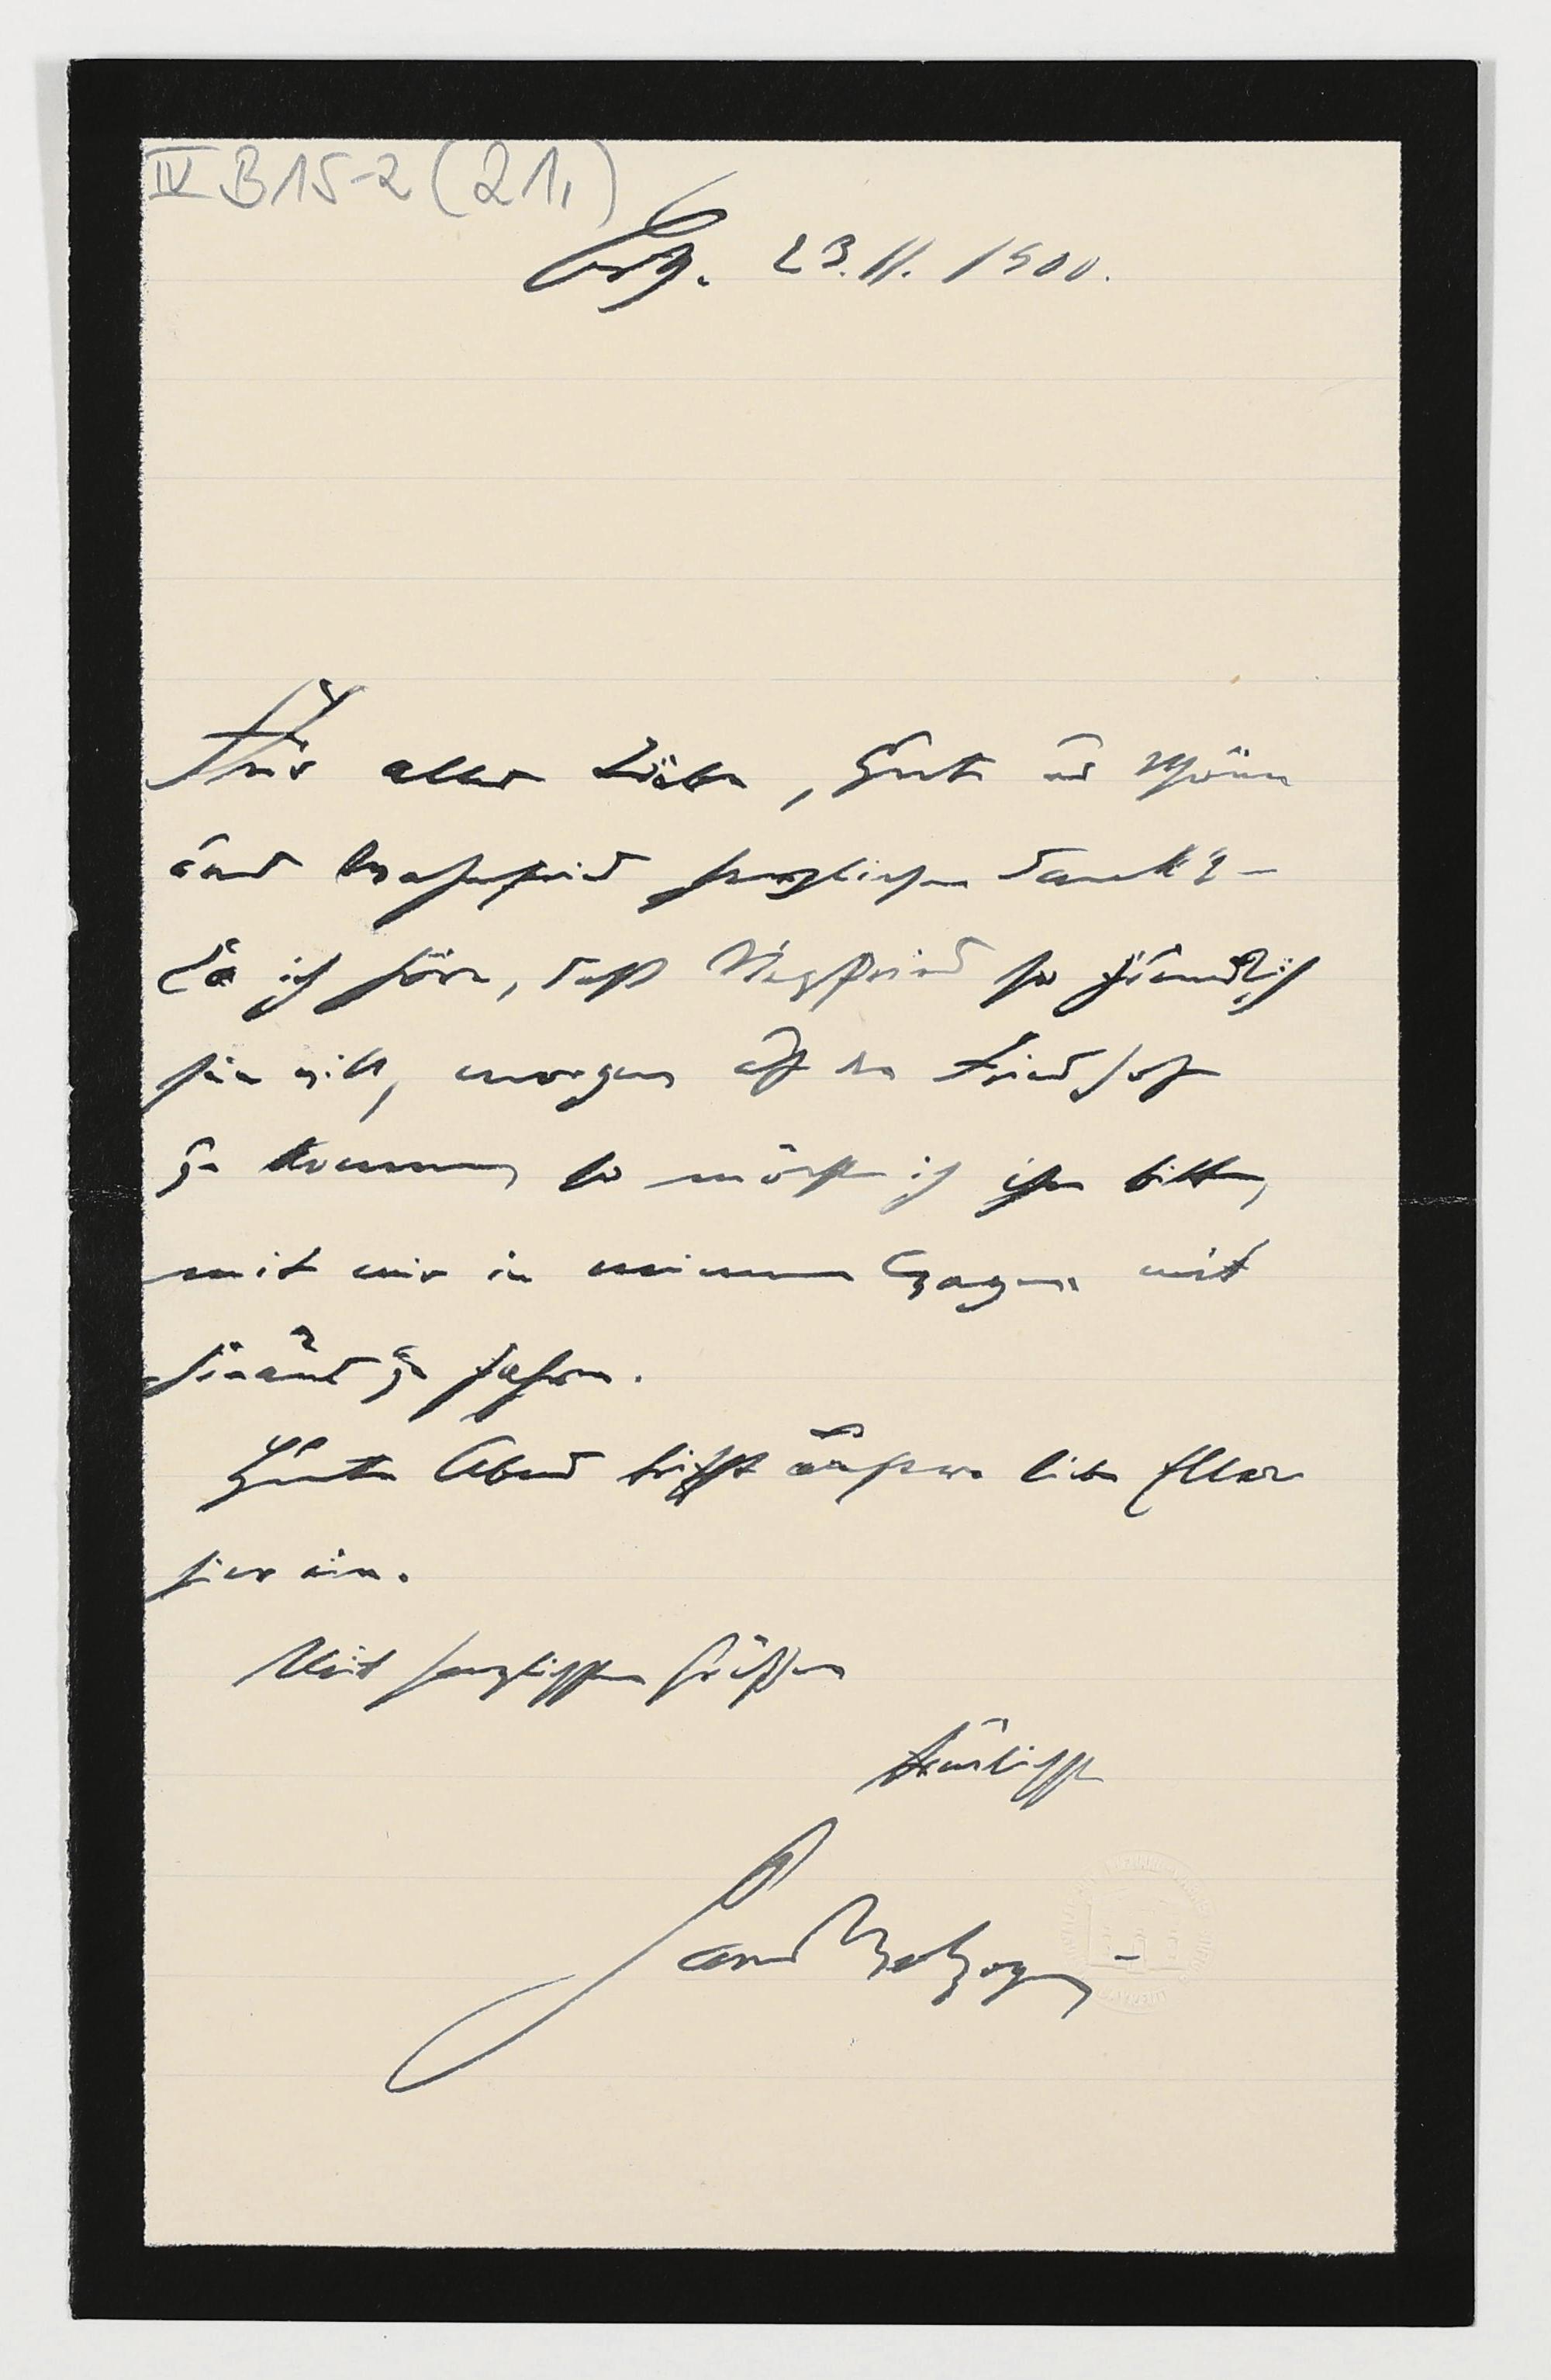 IV B 15-2 (21,)
Bth. 23.11.1900.
Für alles Liebe, Gute und Schöne
und Wahnfried herzlichen Dank! –
Da ich höre, daß Siegfried so freundlich
sein will, morgen auf den Friedhof
zu kommen, so möchte ich ihn bitten,
mit mir in meinem Wagen mit
hinaus zu fahren.
Heute Abend trifft unsere liebe Ellen
hier ein.
Mit herzlichsten Grüßen
treulichst
Hans Wolzogen –